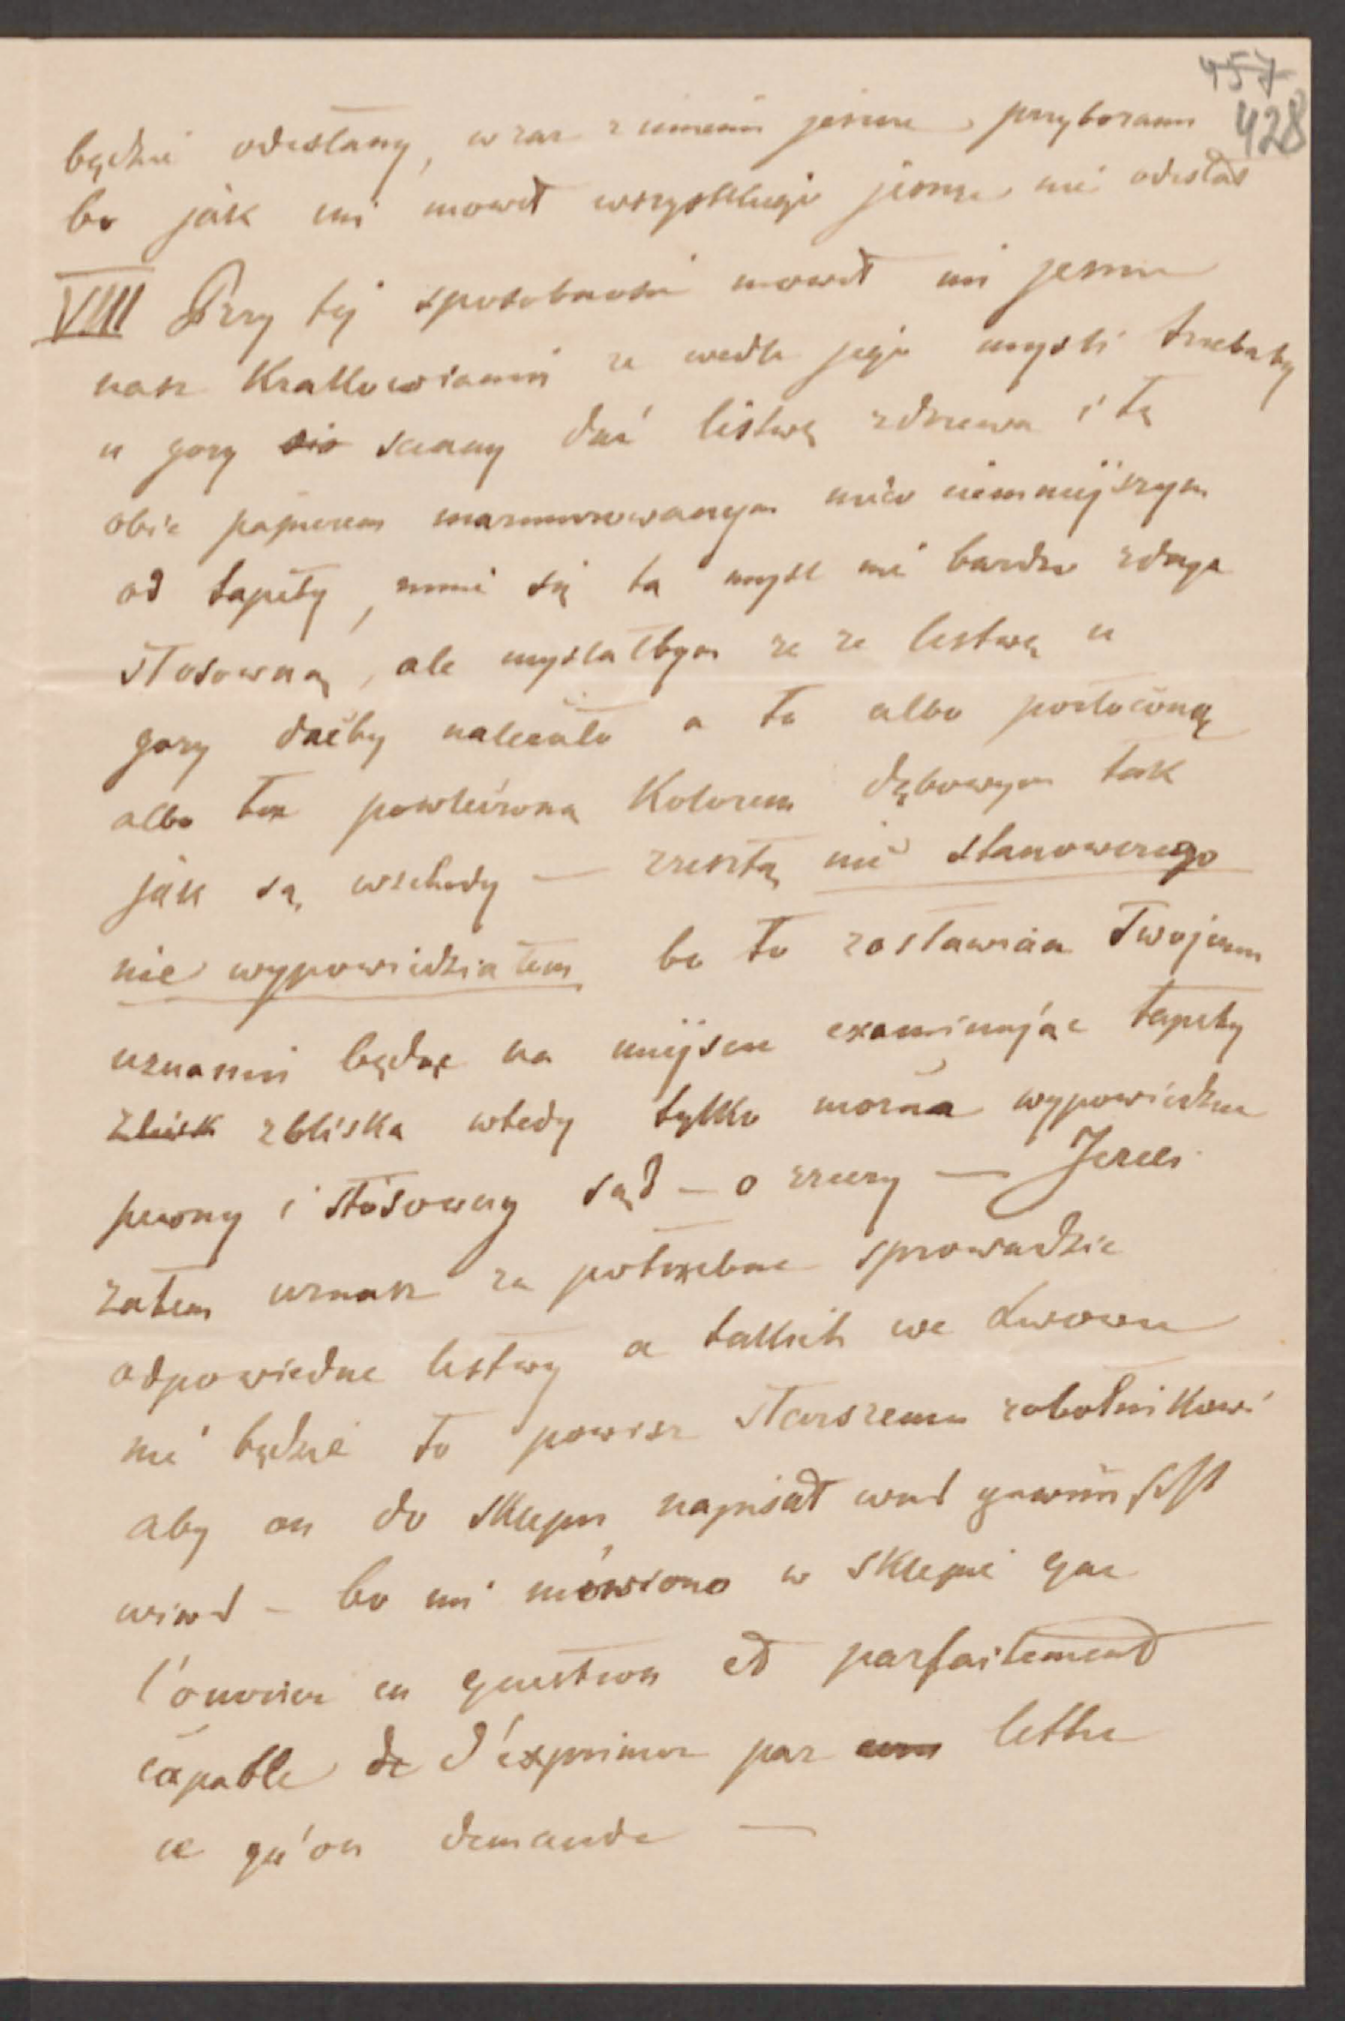 457
428
będzie odesłany, wraz z innemi jeszcze przyborami
bo jak mi mowił wszystkiego jeszcze nie odesłał
VIII Przy tej sposobnosci mowił mi jeszcze
nasz Krakowianin ze wedle jego mysli trzebaby
u gory sciany dać listwę zdrzewa i tę
obić papierem marmurowanym nieco ciemniejszym
od tapety, mnie się ta mysl nie bardzo zdaje
stosowną, ale myslałbym ze ze listwę u
gory daćby należało a to albo pozłoconą
albo też powleczoną Kolorem dębowym tak
jak są wschody — zresztą nic stanowczego
nie wypowiedziałem bo to zostawiam Twojemu
uznaniu będąc na miejscu examinując tapety
zblisk zbliska wtedy tylko można wypowiedziec
pewny i stósowny sąd — o rzeczy — Jezeli
zatem uznasz za potrzebne sprowadzic
odpowiednie listwy a takich we Lwowie
nie będzie to powiesz starszemu robotnikowi
aby on do sklepu napisał was gewünscht
wird — bo mi mówiono w sklepie que
l'ouvrier en question est parfaitement
capable de d'exprimer par lettre
ce qu'on demande —